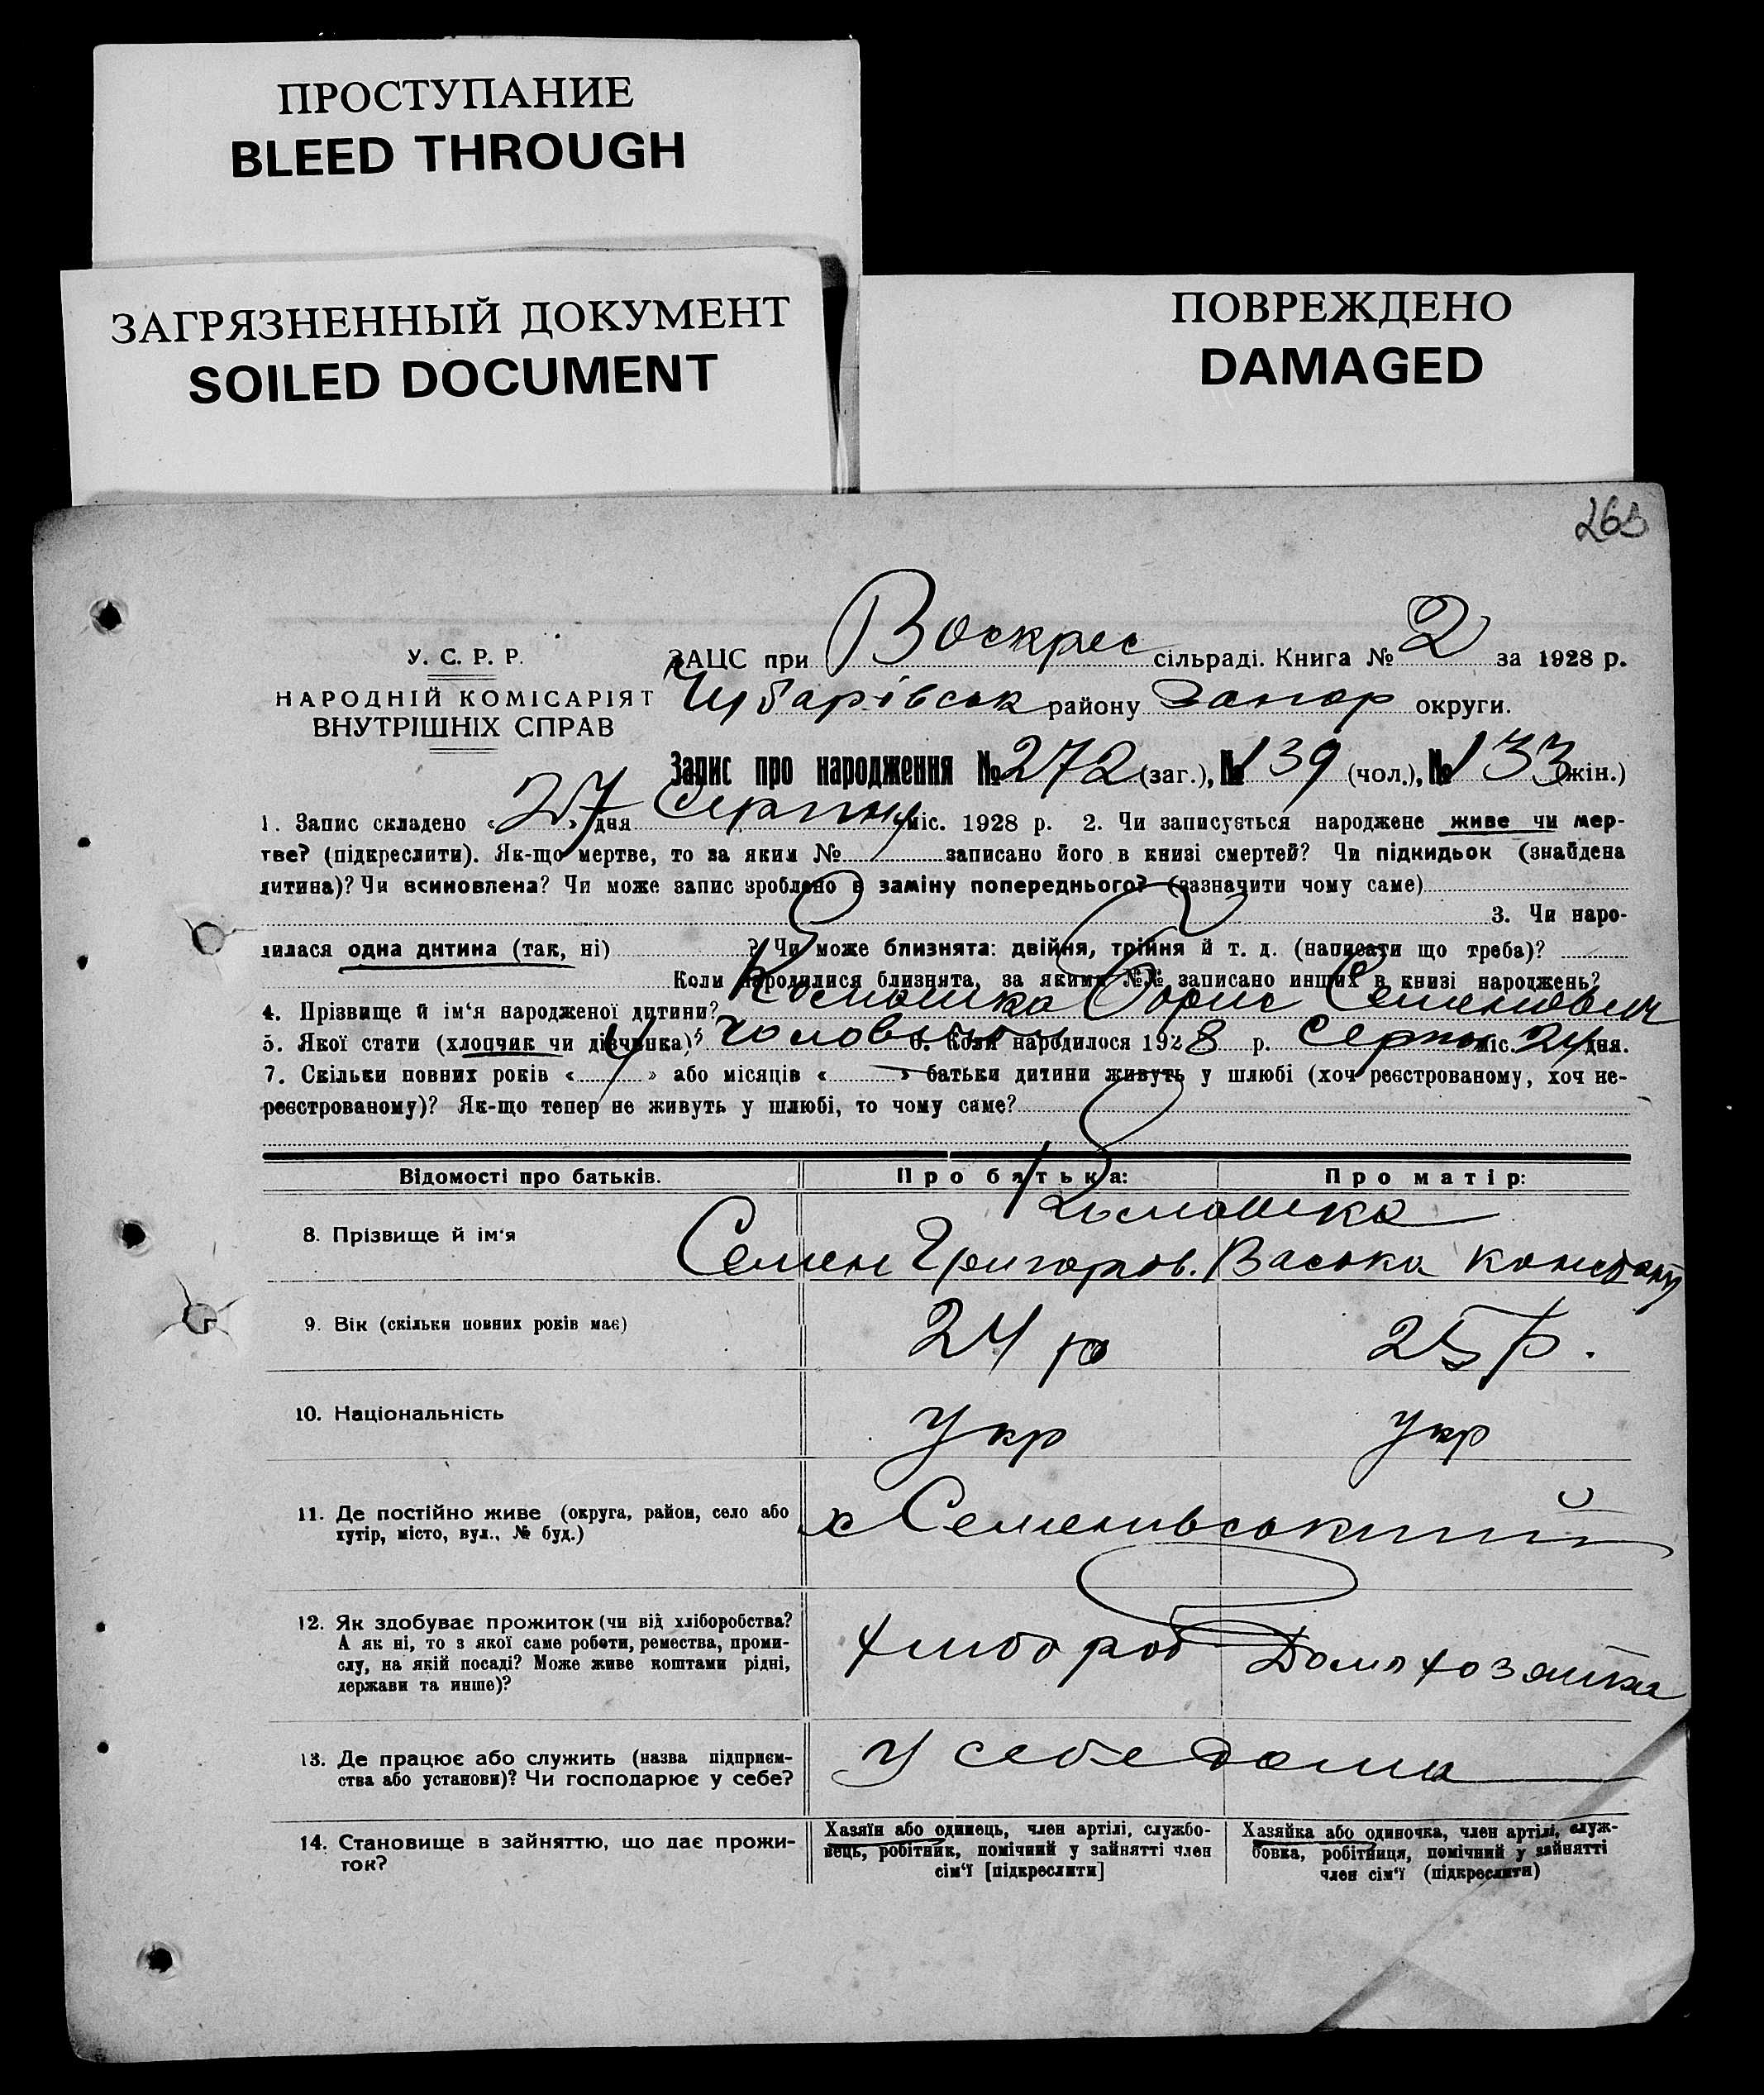 ПРОСТУПАНИЕ
BLEED THROUGH
ЗАГРЯЗНЕННЫЙ ДОКУМЕНТ
SOILED DOCUMENT
ПОВРЕЖДЕНО
DAMAGED
У. С. Р. Р.
НАРОДНІЙ КОМІСАРІЯТ
ВНУТРІШНІХ СПРАВ
ЗАЦС при Воскрес сільраді. Книга № 2 за 1928 р.
Чубарівськ району Запор округи.
Запис про народження № 272 (заг.), № 139 (чол.), № 133 (жін.)
1. Запис складено « 27 » дня Серпня міс. 1928 р. 2. Чи записується народжене живе чи мер-
тве? (підкреслити). Як-що мертве, то за яким № записано його в книзі смертей? Чи підкидьок (знайдена
дитина)? Чи всиновлена? Чи може запис зроблено в заміну попереднього? (зазначити чому саме)
3. Чи наро-
дилася одна дитина (так, ні) ? Чи може близнята: двійня, трійня й т. д. (написати що треба)?
Коли народилися близнята, за якими №№ записано инших в книзі народжень?
4. Прізвище й ім'я народженої дитини? Борис Семенович
5. Якої стати (хлопчик чи дівчинка)? 6. Коли народилося 1928 р. Серпня міс. 24 дня.
7. Скільки повних років « » або місяців « » батьки дитини живуть у шлюбі (хоч реєстрованому, хоч не-
реєстрованому)? Як-що тепер не живуть у шлюбі, то чому саме?
Відомості про батьків. Про батька: Про матір:
8. Прізвище й ім'я
Семен Григоров. Васька
9. Вік (скільки повних років має) 24 р 25 р.
10. Національність Укр Укр
11. Де постійно живе (округа, район, село або
хутір, місто, вул., № буд.)
х Семенивський
12. Як здобуває прожиток (чи від хліборобства?
А як ні, то з якої саме роботи, ремества, проми-
слу, на якій посаді? Може живе коштами рідні,
держави та инше)?
хлибороб Домохозяйка
13. Де працює або служить (назва підприєм-
ства або установи)? Чи господарює у себе?
У себе дома
14. Становище в зайняттю, що дає прожи-
ток?
Хазяїн або одинець, член артілі, службо-
вець, робітник, помічний у зайнятті член
сім'ї [підкреслити]
Хазяйка або одиночка, член артілі, служ-
бовка, робітниця, помічний у зайнятті
член сім'ї (підкреслити)